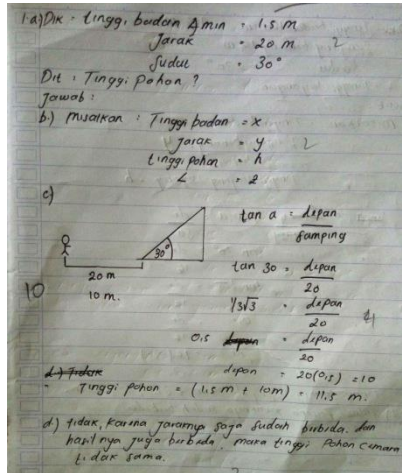 1.a) Dik : tinggi badan Amin = 1,5 m
Jarak = 20 m 2
Sudut = 30°
Dit : Tinggi pohon ?
Jawab :
b.) Misalkan : Tinggi badan = x
Jarak = y 2
tinggi pohon = h
∠ = 2
c)
tan a = depan / samping
30°
20 m
10 m.
10
tan 30 = depan / 20
1/3√3 = depan / 20
4
0,5 = depan / 20
d.) Tidak
depan = 20(0,5) = 10
- Tinggi pohon = (1,5 m + 10m) = 11,5 m.
d.) tidak, karena jaraknya saja sudah berbeda. dan
hasilnya juga berbeda, maka tinggi pohon cemara
tidak sama.